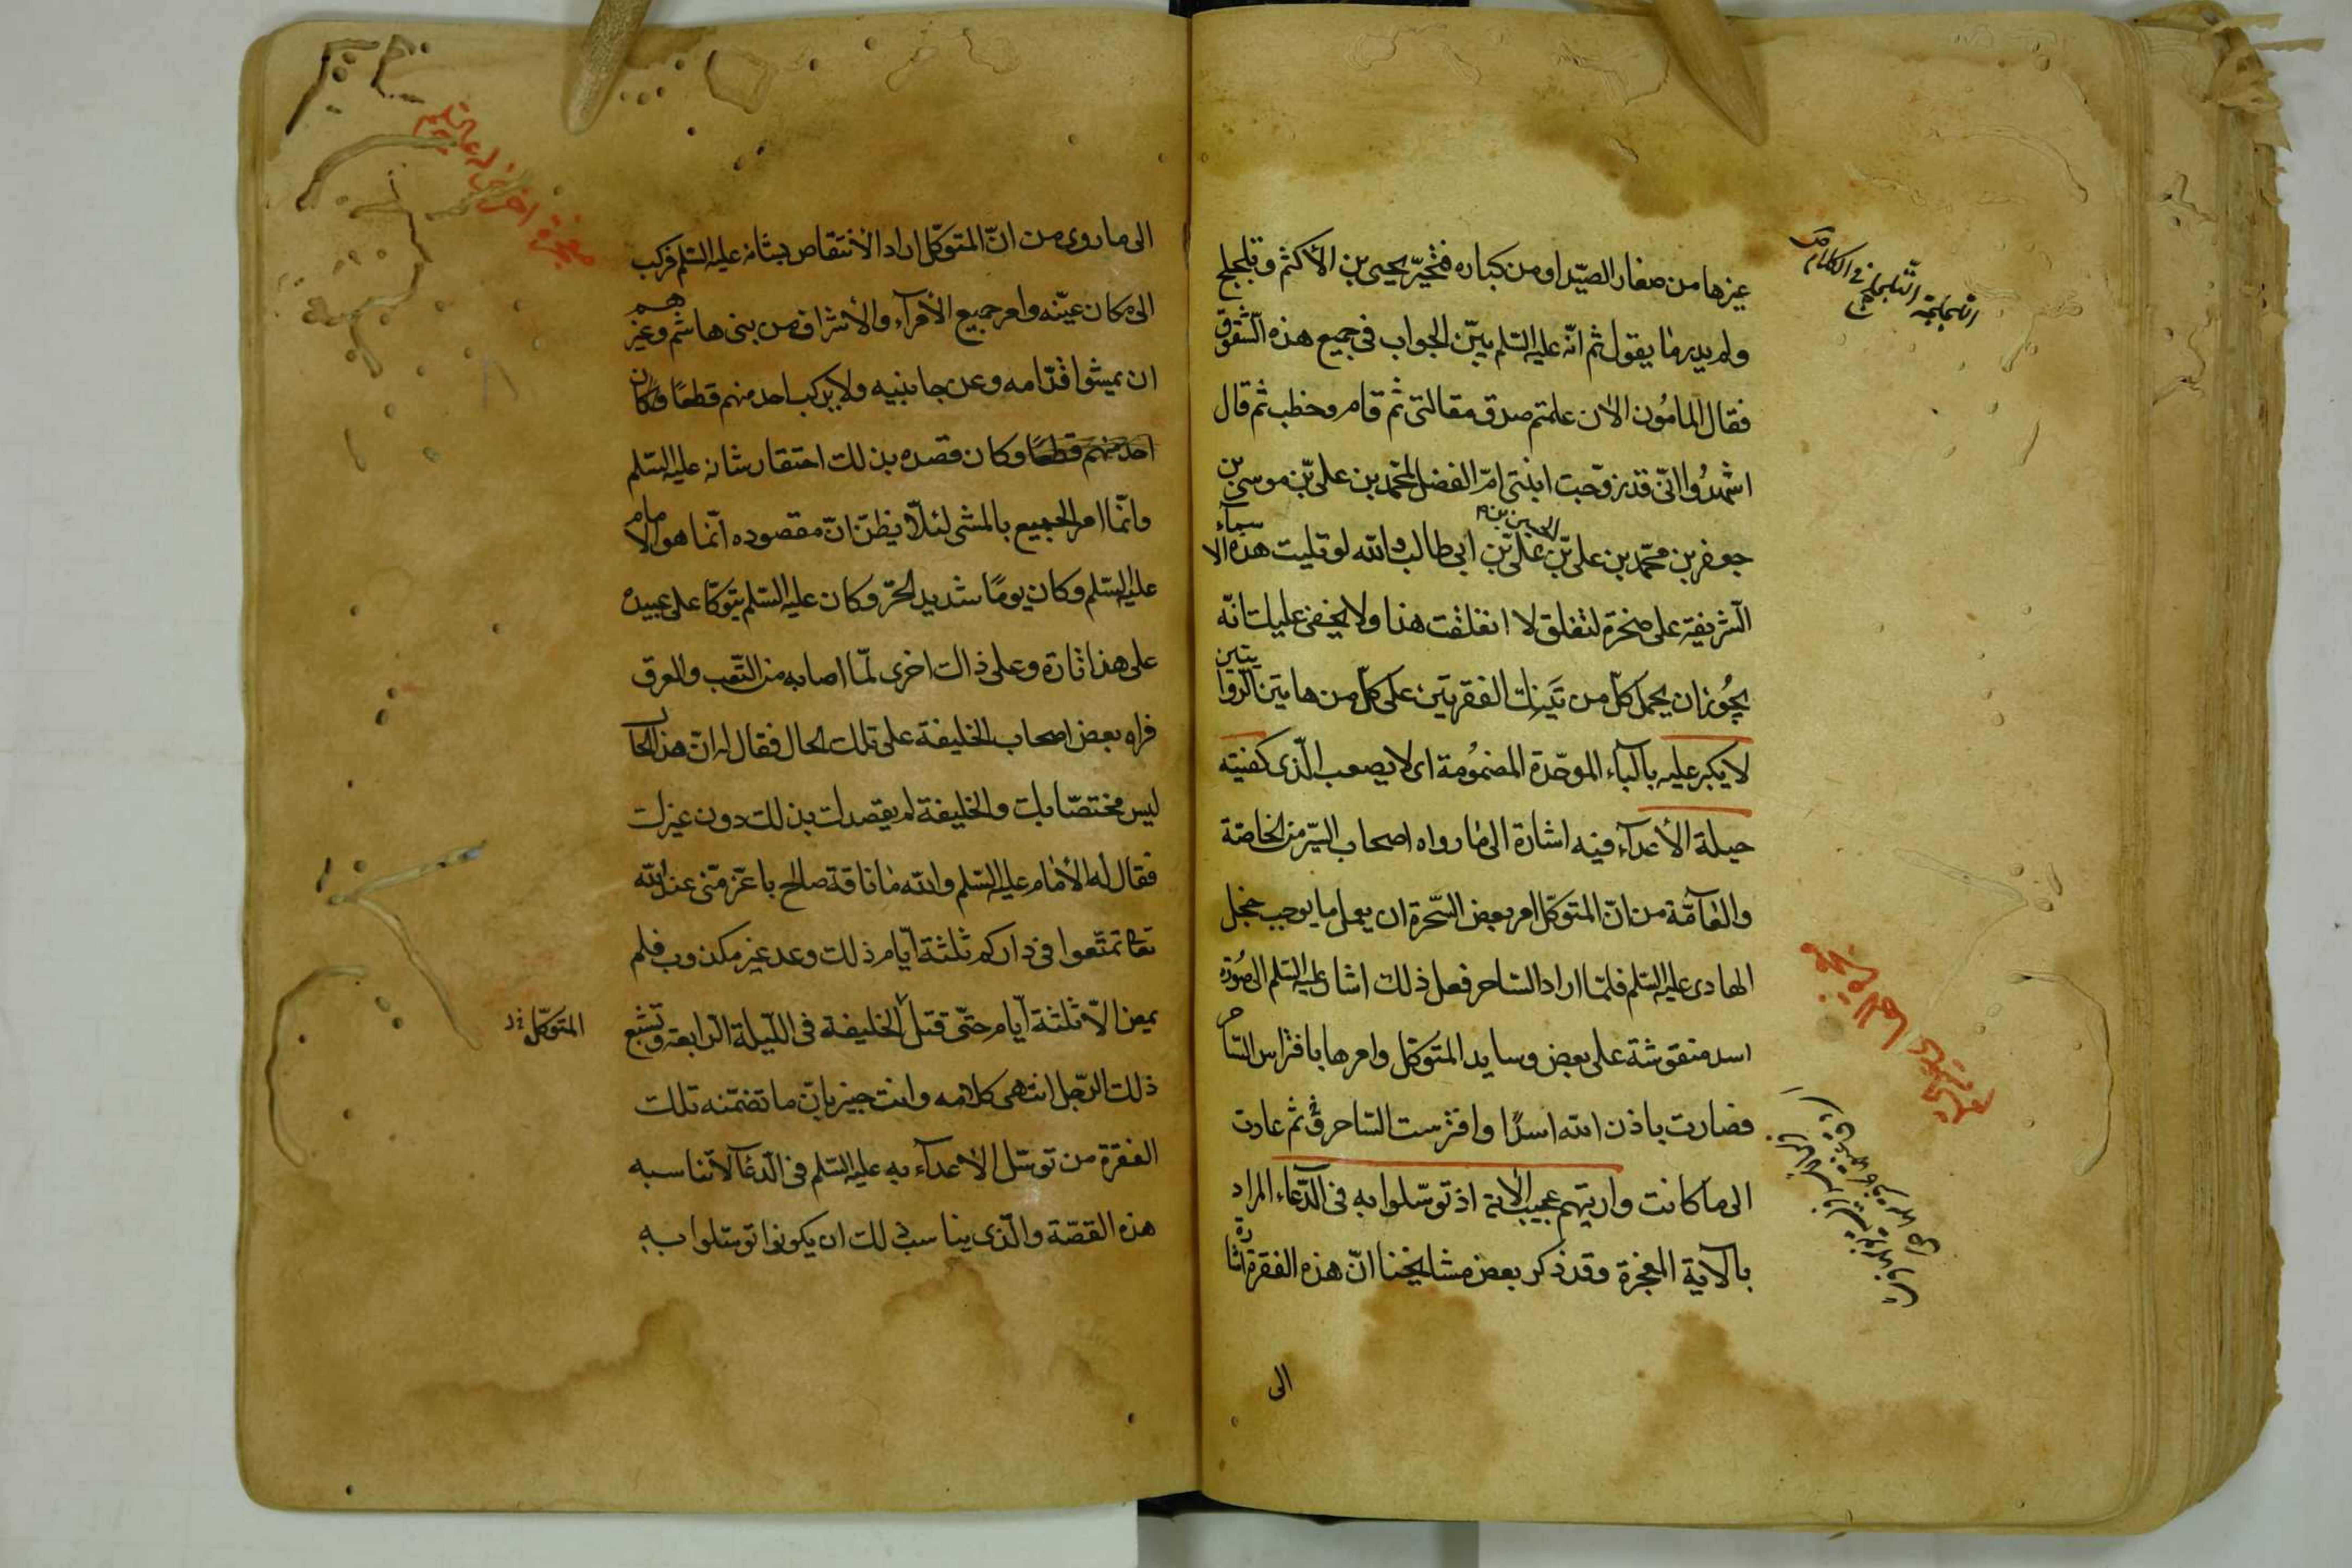 غيرها من صغار الصيد او من كباره فتحيّر يحيى بن الأكثم و تلجلج
ولم يدر ما يقول ثم انّه عليه السّلم بيّن الجواب فى جميع هذه الشقوق
فقال المامون الان علمتم صدق مقالتى ثم قام وخطب ثم قال
اشهدوا انّى قد زوّجت ابنتى امّ الفضل لمحمّد بن علىّ بن موسى بن
جعفر بن محمّد بن علىّ بن الحسين بن علىّ بن ابى طالب والله لو تليت هذه الاسماء
الشريفة على صخرة لتفلق لا انفلقت هذا ولا يخفى عليك انّه
يجوز ان يحمل كلّ من تَينِك الفقرتين على كلّ من هاتين الرّوايتين
لا يكبر عليه بالباء الموحّدة المضمومة اى لا يصعب الّذى كفيته
حيلة الأعدآء فيه اشارة الى ما رواه اصحاب السّير من الخاصّة
والعامّة من انّ المتوكّل امر بعض السّحرة ان يعمل ما يوجب خجل
الهادى عليه السّلم فلمّا اراد الساحر فعل ذلك اشار عليه السّلم الى صورة
اسد منقوشة على بعض وسايد المتوكّل وامرها بافتراس الساحر
فصارت باذن الله اسدًا وافترست الساحر ثم عادت
الى ما كانت واريتهم عجيب الأية اذ توسّلوا به فى الدّعاء المراد
بالآية المعجزة وقد ذكر بعض مشايخنا انّ هذه الفقرة اشارة
الى
التلجلج فى الكلام
الى ما روى من انّ المتوكّل اراد الأنتقاص بشانه عليه السّلم فركب
الى مكان عيّنه وامر جميع الأمرآء والأشراف من بنى هاشم وغيرهم
ان يمشوا قدّامه وعن جانبيه ولا يركب احد منهم قطعًا وكان
احد منهم قطعًا وكان قصده بذلك احتقار شانه عليه السّلم
وانّما امر الجميع بالمشى لئلّا يظنّ انّ مقصوده انّما هو الامام
عليه السّلم وكان يومًا شديد الحرّ وكان عليه السّلم يتوكّا على عبيده
على هذا تارة وعلى ذاك اخرى لمّا اصابه من التّعب والعرق
فراه بعض اصحاب الخليفة على تلك الحال فقال له انّ هذا الحال
ليس مختصّا بك والخليفة لم يقصدك بذلك دون غيرك
فقال له الأمام عليه السّلم والله ما ناقة صالح باعزّ منّى عند الله
تعا تمتّعوا فى داركم ثلثة أيّام ذلك وعد غير مكذوب فلم
يمض الّا ثلثة أيام حتّى قتل الخليفة فى اللّيلة الرّابعة وتشيع
المتوكّل
ذلك الرّجل انتهى كلامه وانت خبير بانّ ما تضمّنه تلك
الفقرة من توسّل الأعدآء به عليه السّلم فى الدّعآ لا تناسبه
هذه القصّة والّذى يناسب ذلك ان يكونوا توسّلوا به
معجزة اخرى له عليه السّلم